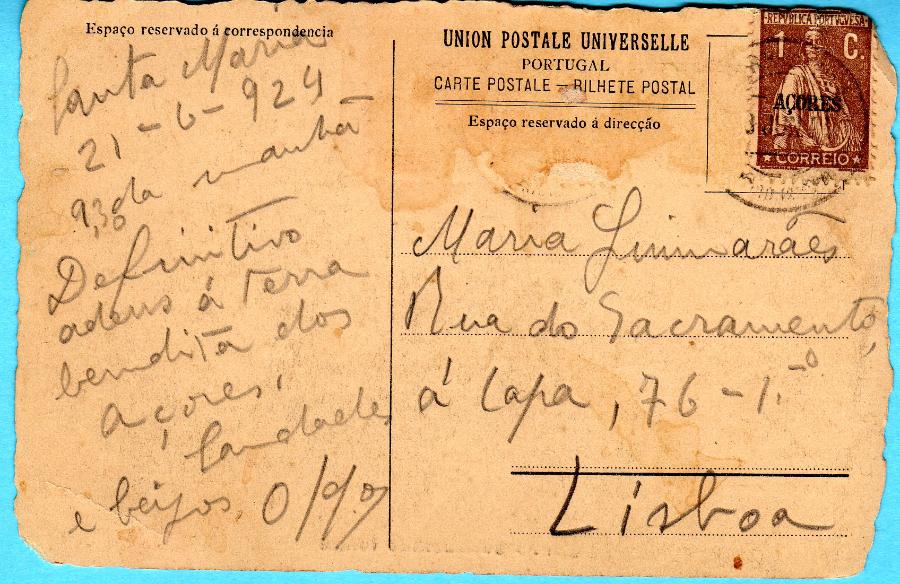 Espaço reservado á correspondencia
Santa Maria
21-6-924
9,30 da manhã
Definitivo
adeus á terra
bendita dos
Açores,
Saudades
e beijos
UNION POSTALE UNIVERSELLE
PORTUGAL
CARTE POSTALE — BILHETE POSTAL
Espaço reservado á direcção
REPUBLICA PORTUGUESA
1 C.
AÇORES
CORREIO
Maria Guimarães
Rua do Sacramento,
á Lapa, 76-1.º
Lisboa